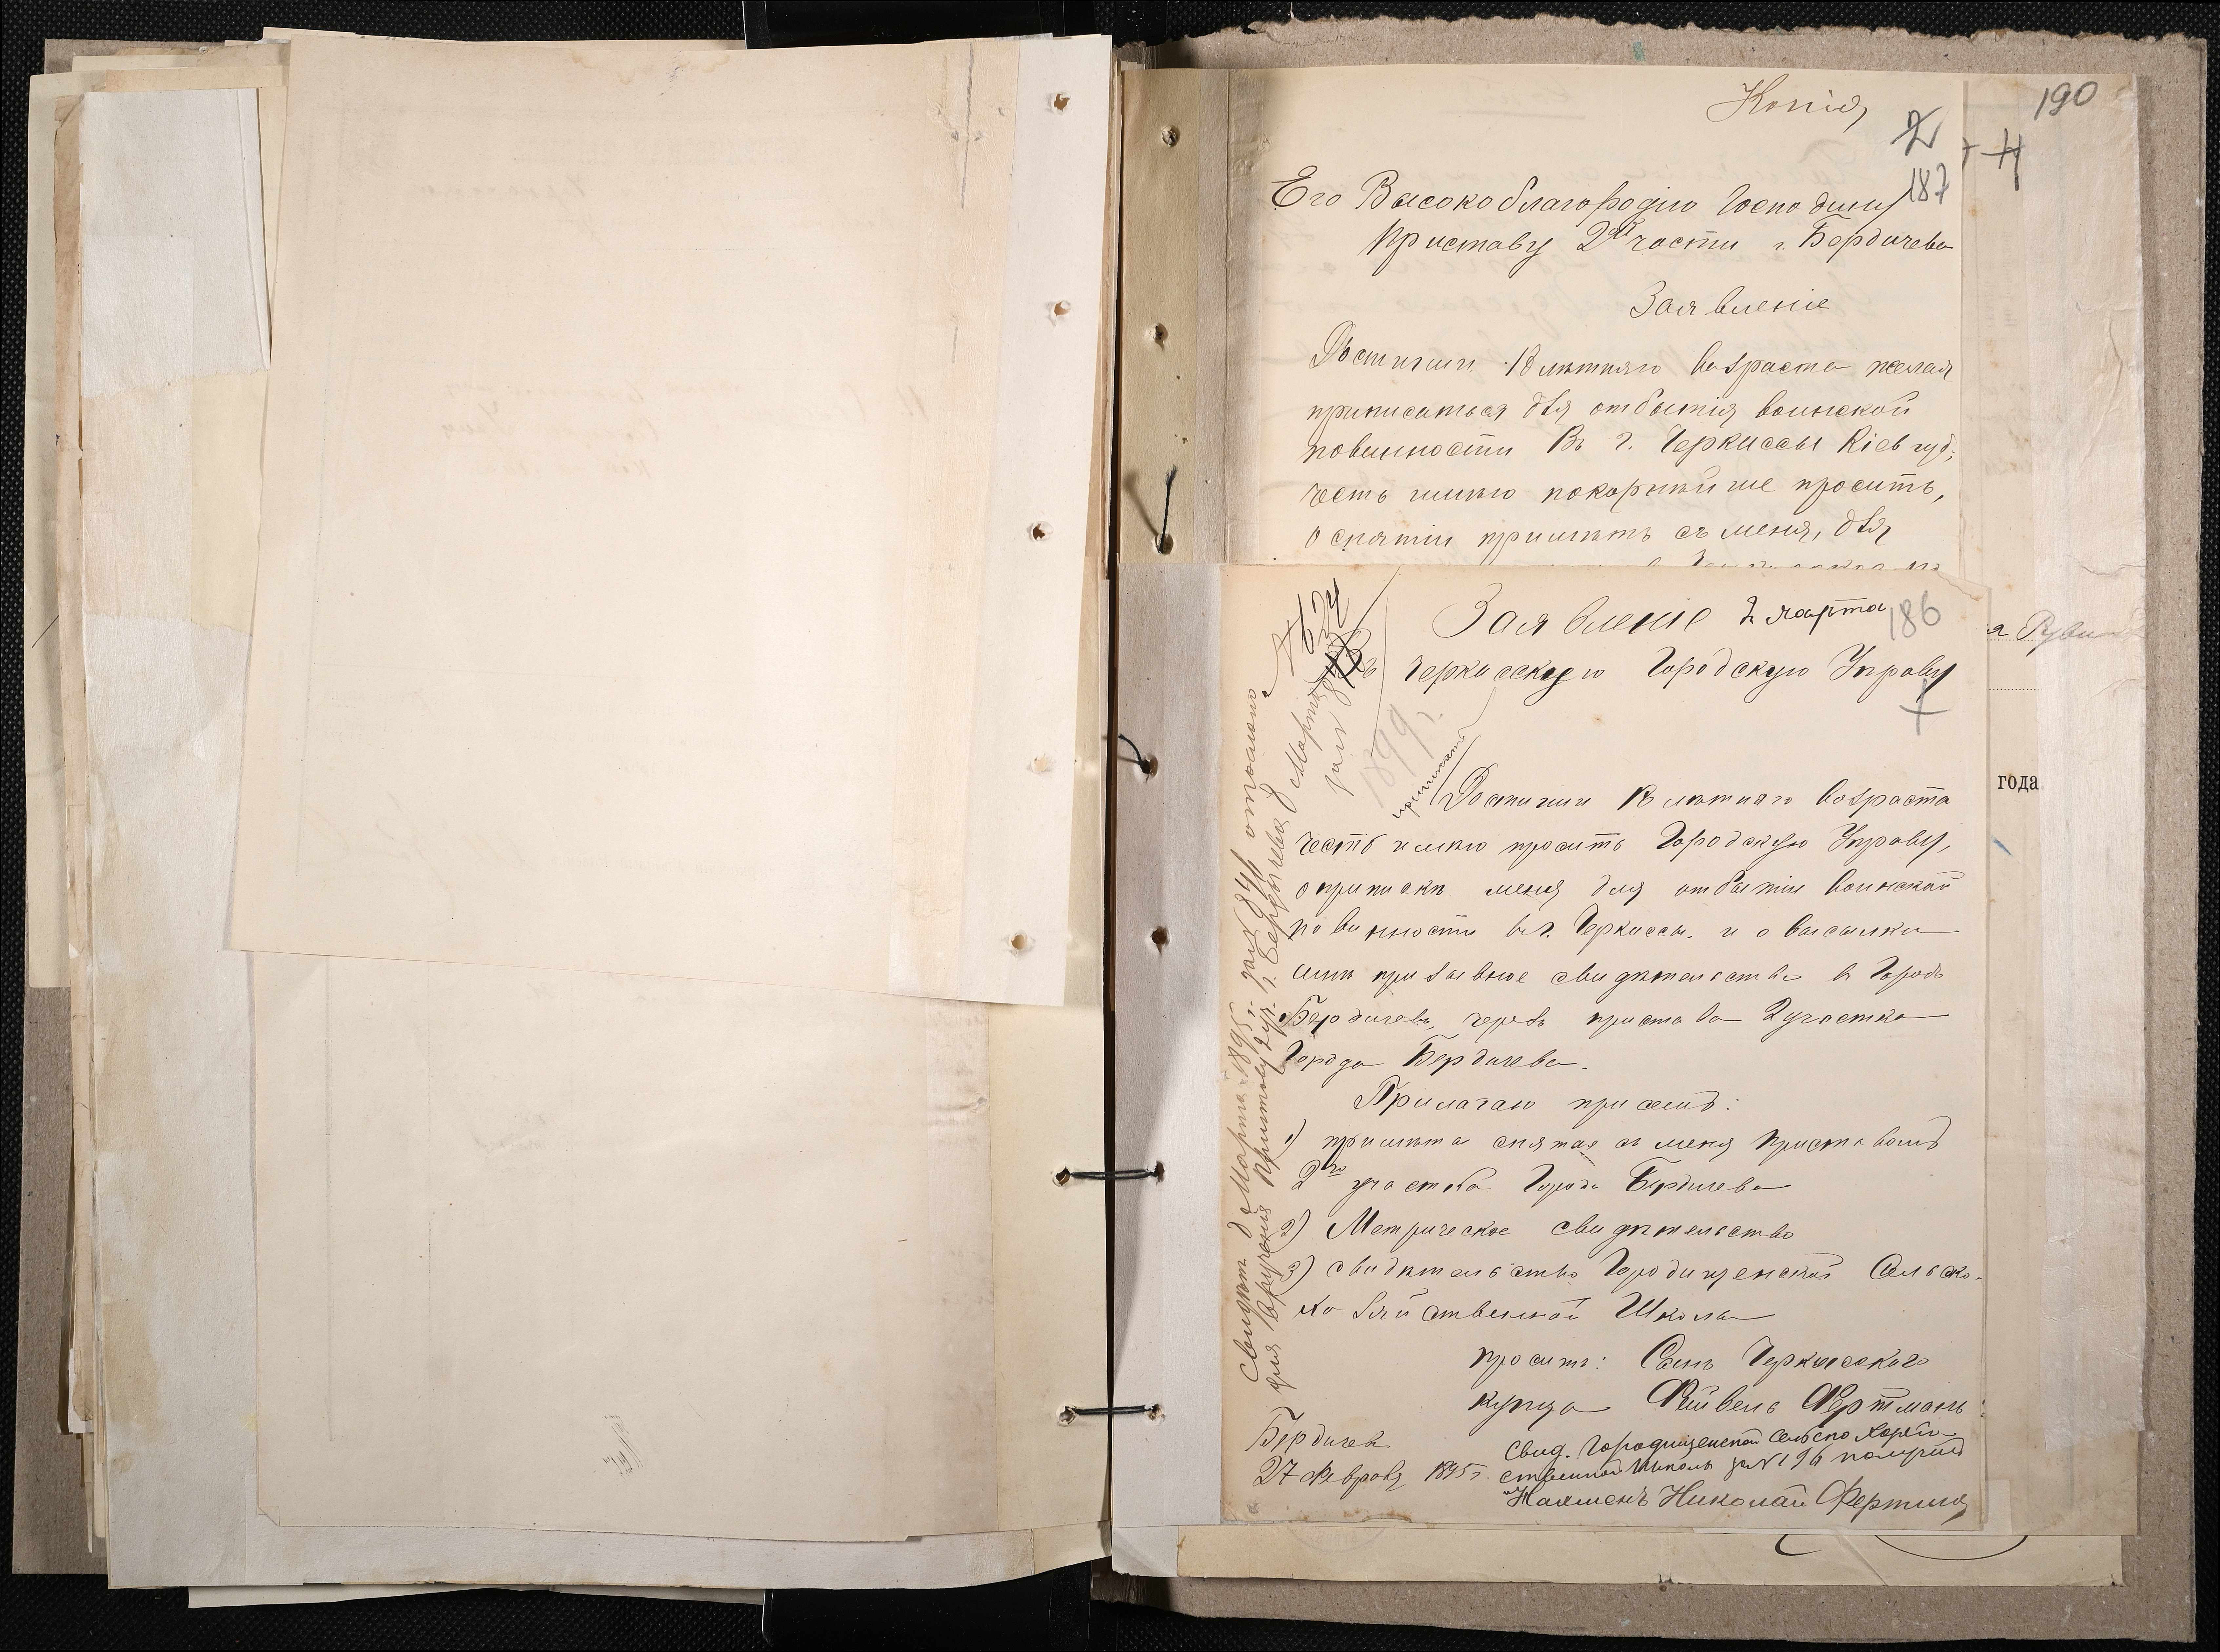 Копія
190
2
187
Его Высокоблагородію Господину
Приставу 2ой части г. Бердичева
Заявленіе
Достигши 18 лѣтняго возраста желая
приписаться для отбытія воинской
повинности въ г. Черкассы Кіев губ.,
честь имѣю покорнѣйше просить,
о снятіи примѣтъ съ меня, для
Заявленіе 2 марта
186
Въ Черкасскую Городскую Управу
1899 г.
Достигши 18 лѣтняго возраста
честь имѣю просить Городскую Управу,
о припискѣ меня для отбытіи воинской
повинности въ г. Черкассы, и о высылки
мнѣ призывное свидѣтельство въ Городъ
Бердичевъ, черезъ пристава 2 участка
Города Бердичева.
Прилагаю при семъ:
1) примѣта снятая съ меня приставомъ
2го участка Города Бердичева
2) Метрическое свидѣтельство
3) свидѣтельство Городищенской Сельско-
хозяйственной Школы
проситъ: Сынъ Черкасскаго
купца Фейвель Фертманъ
Бердичев
27 Февраля 1895 г.
Свид. Городищенской Сельско Хозяй-
ственной Школы за № 196 получилъ
Николай Фертманъ
Свидѣт. 8 Марта 1895 г. за № 841 отослано
для врученія Приставу 2 уч. г. Бердичева 8 Марта
за №
приписать
года